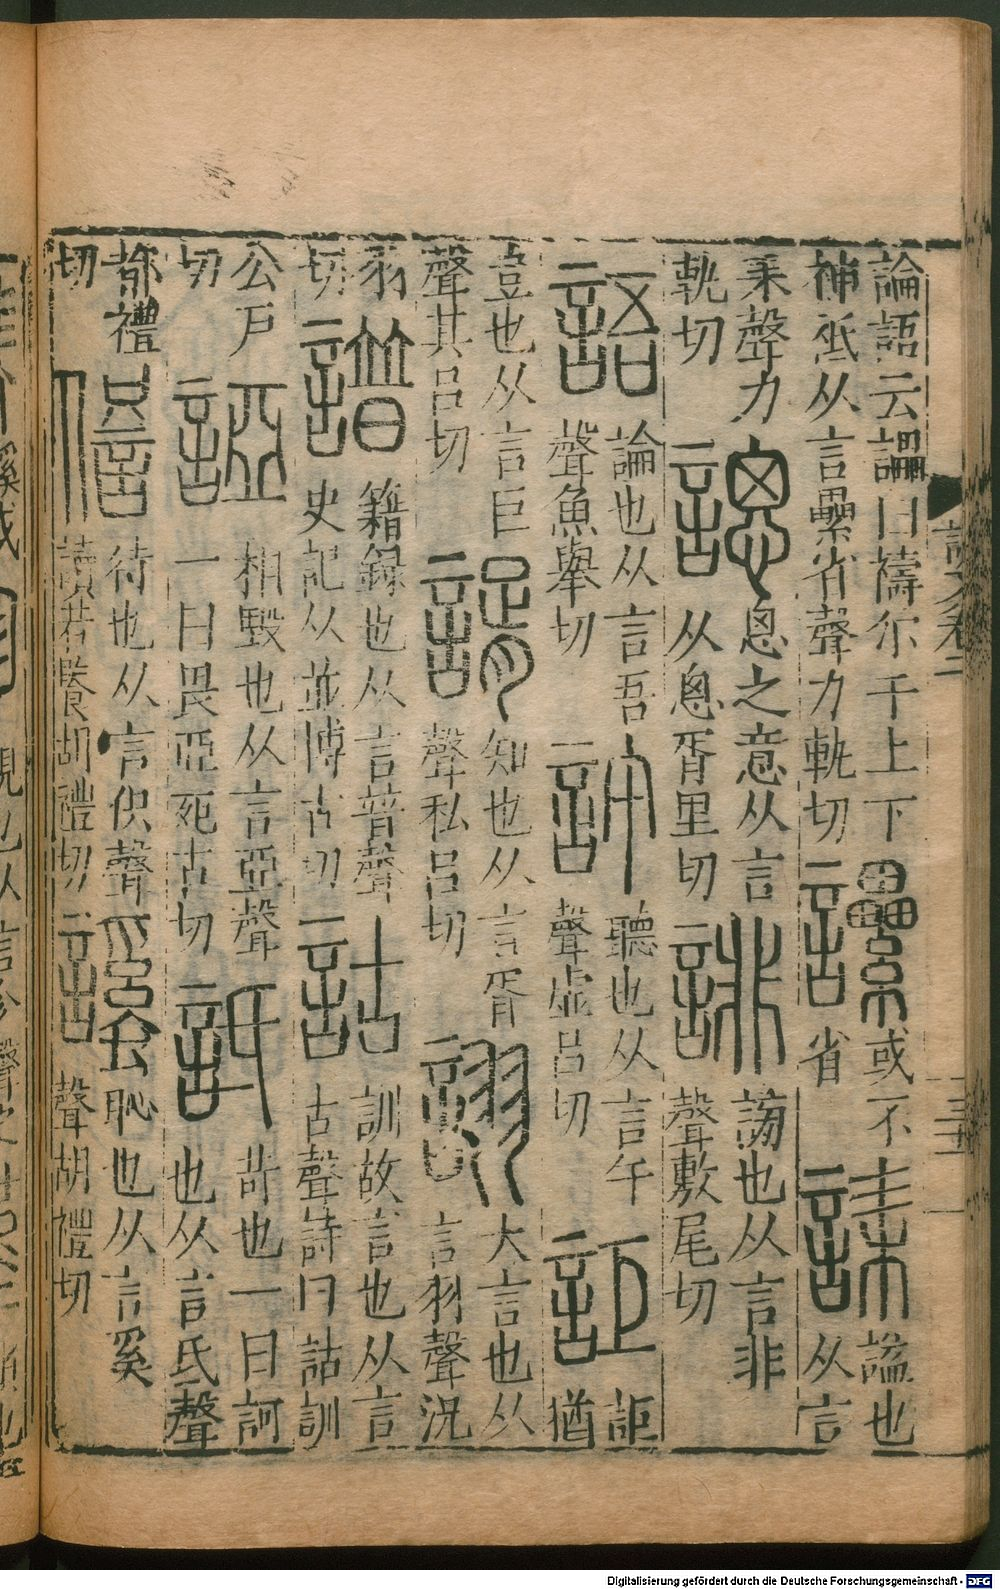 論語云讄曰禱尔于上下神祗从言纍省聲力軌切 𧮢 或不省 誄 諡也从言
耒聲力軌切 諰 恖之意从言从恖胥里切 誹 謗也从言非聲敷尾切
語 論也从言吾聲魚舉切 許 聽也从言午聲虛呂切 詎 詎猶
豈也从言巨聲其呂切 諝 知也从言胥聲私呂切 詡 大言也从言羽聲況
羽切 譜 籍録也从言普聲史記从並博古切 詁 訓故言也从言古聲詩曰詁訓
公戶切 䛩 相毀也从言亞聲一曰畏亞死古切 詆 苛也一曰訶也从言氐聲
都禮切 待也从言伿聲讀若胡禮切 謑 恥也从言奚聲胡禮切
説文卷二
Digitalisierung gefördert durch die Deutsche Forschungsgemeinschaft - DFG